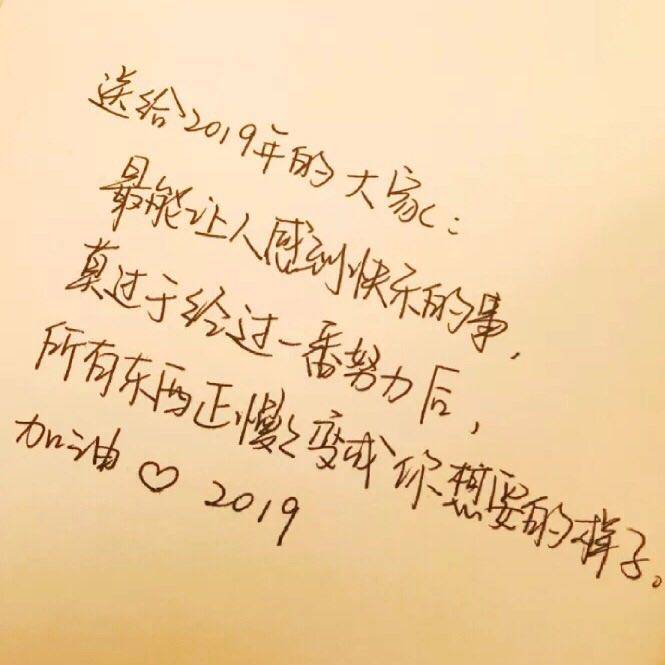 送给2019年的大家:
最能让人感到快乐的事,
莫过于经过一番努力后,
所有东西正慢々变成你想要的样子。
加油♡2019